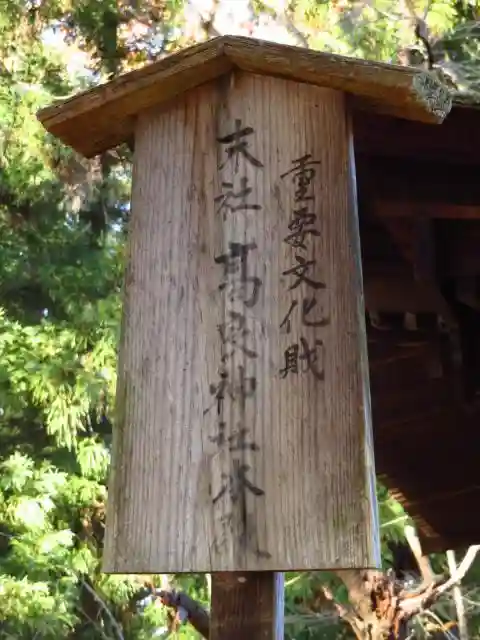 重要文化財
末社高良神社本殿